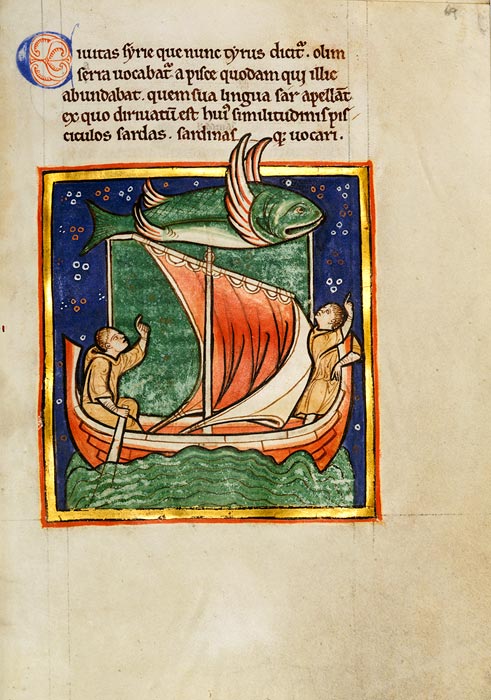 Ciuitas syrie que nunc tyrus dicit᷑. olim
serra uocabat᷑ a pisce quodam qui illic
abundabat. quem sua lingua sar apellāt
ex quo diriuatū est huiꝰ similitudinis pis
ciculos sardas. sardinas qꝫ uocari.